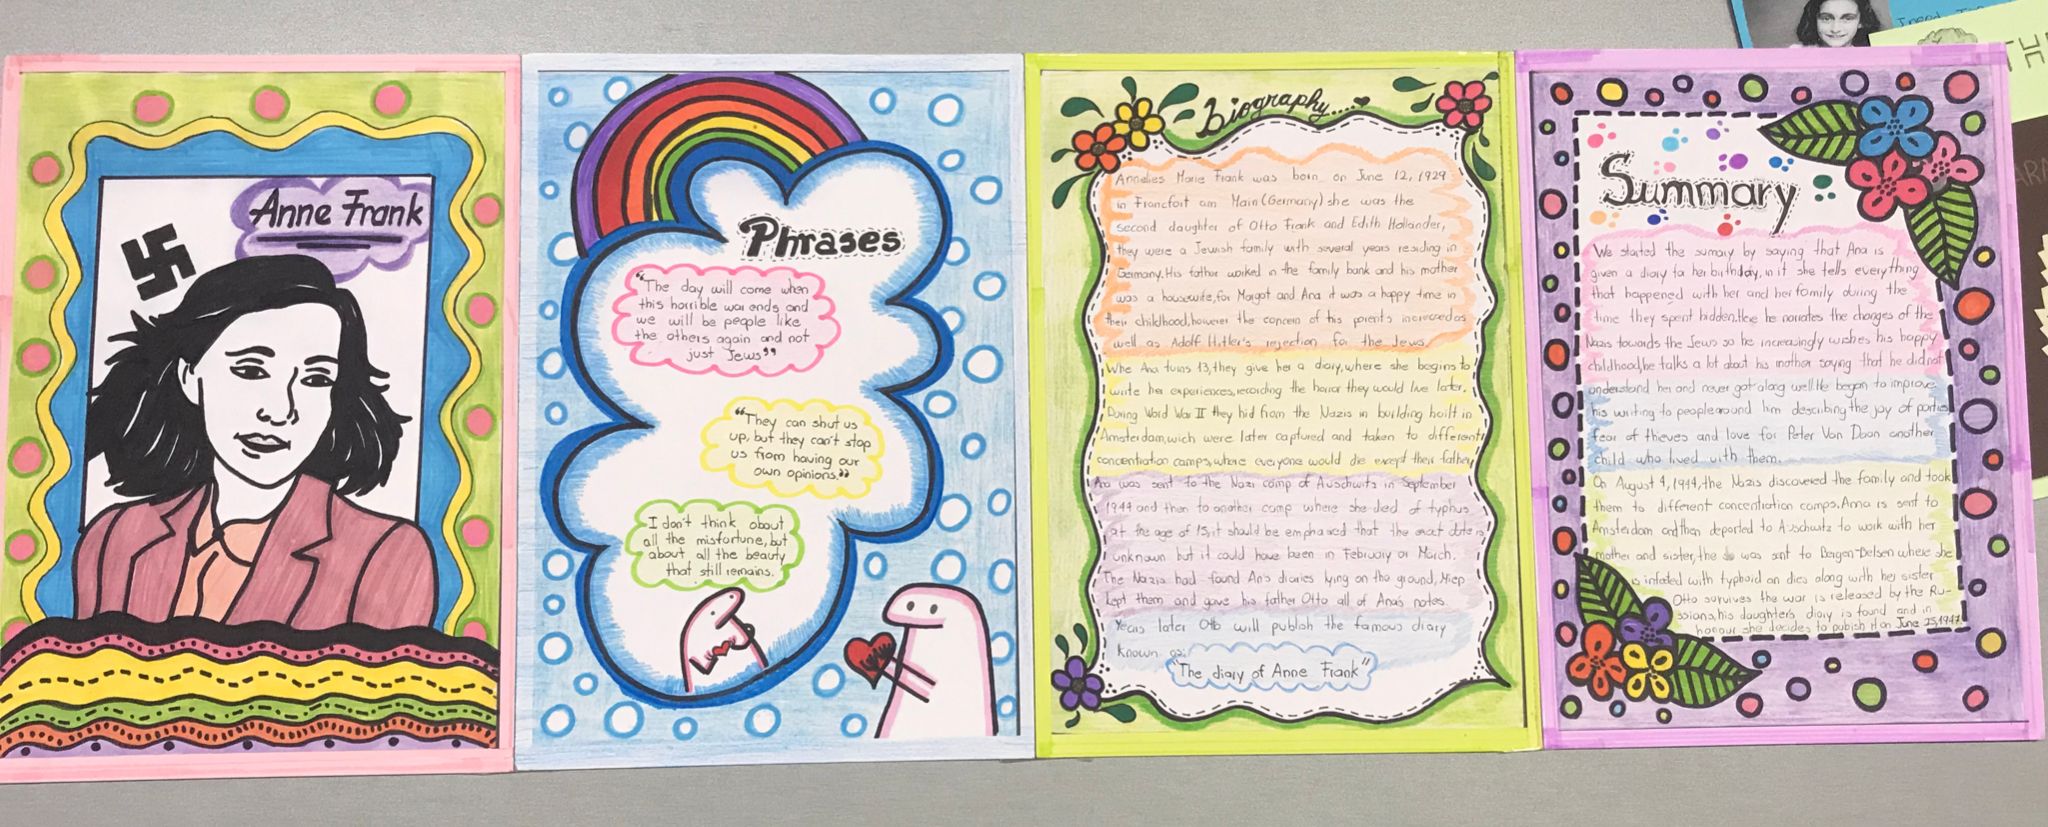 Anne Frank
Phrases
“The day will come when
this horrible war ends and
we will be people like
the others again and not
just Jews”
“They can shut us
up, but they can't stop
us from having our
own opinions.”
I don't think about
all the misfortune, but
about all the beauty
that still remains.
biography.....
Annelies Marie Frank was born on June 12, 1929
in Francfort am Main (Germany) she was the
second daughter of Otto Frank and Edith Hollander,
they were a Jewish family with several years residing in
Germany. His father worked in the family bank and his mother
was a housewife, for Margot and Ana it was a happy time in
their childhood, however the concern of his parents increased as
well as Adolf Hitler's rejection for the Jews.
Whe Ana turns 13, they give her a diary, where she begins to
write her experiences, recording the horror they would live later.
During Word War II they hid from the Nazis in building built in
Amsterdam, wich were later captured and taken to different
concentration camps, where everyone would die except their father
Ana was sent to the Nazi camp of Auschwits in September
1944 and then to another camp where she died of typhus
at the age of 15, it should be emphasized that the exact date is
unknown but it could have been in February or March.
The Nazis had found Ana's diaries lying on the ground, Miep
kept them and gave his father Otto all of Ana's notes.
Years later Otto will publish the famous diary
known as:
“The diary of Anne Frank”
Summary
We started the sumary by saying that Ana is
given a diary for her birthday, in it she tells everything
that happened with her and her family during the
time they spent hidden. Here he narrates the changes of the
Nazis towards the Jews so he increasingly wishes his happy
childhood, he talks a lot about his mother saying that he did not
understand her and never got along well. He began to improve
his writing to people around him describing the joy of parties
fear of thieves and love for Peter Van Daan another
child who lived with them.
On August 4, 1944, the Nazis discovered the family and took
them to different concentration camps. Anna is sent to
Amsterdam and then deported to Auschwitz to work with her
mother and sister, the was sent to Bergen-Belsen where she
is infected with typhoid an dies along with her sister
Otto survives the war is released by the Ru-
ssians, his daughter's diary is found and in
honour she decides to publish it on June 25, 1947
I need
TH